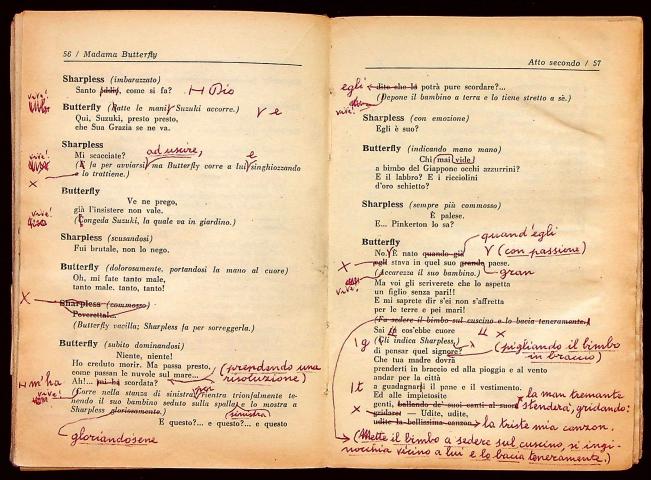 56 / Madama Butterfly
Sharpless (imbarazzato)
Santo ddio, come si fa? H Dio
Butterfly (Batte le mani, Suzuki accorre.) e
Qui, Suzuki, presto presto,
che Sua Grazia se ne va.
Sharpless
Mi scacciate? ad uscire,
(fa per avviarsi, ma Butterfly corre a lui e singhiozzando
lo trattiene.)
Butterfly
Ve ne prego,
già l'insistere non vale.
(Congeda Suzuki, la quale va in giardino.)
Sharpless (scusandosi)
Fui brutale, non lo nego.
Butterfly (dolorosamente, portandosi la mano al cuore)
Oh, mi fate tanto male,
tanto male, tanto, tanto!
Sharpless (commosso)
Poveretta!..
(Butterfly vacilla; Sharpless fa per sorreggerla.)
Butterfly (subito dominandosi)
Niente, niente!
Ho creduto morir. Ma passa presto,
come passan le nuvole sul mare... (prendendo una
risoluzione)
Ah!... mi ha scordata?
H m'ha
(Corre nella stanza di sinistra, rientra trionfalmente te-
nendo il suo bambino seduto sulla spalla e lo mostra a
Sharpless gloriosamente.) (sinistra)
E questo?... e questo?... e questo
gloriandosene
Atto secondo / 57
egli
e dito che là potrà pure scordare?...
(Depone il bambino a terra e lo tiene stretto a sè.)
Sharpless (con emozione)
Egli è suo?
Butterfly (indicando mano mano)
Chi mai vide
a bimbo del Giappone occhi azzurrini?
E il labbro? E i ricciolini
d'oro schietto?
Sharpless (sempre più commosso)
È palese.
E... Pinkerton lo sa?
Butterfly
No. È nato quando già quand'egli (con passione)
egli stava in quel suo grande paese. gran
(Accarezza il suo bambino.)
Ma voi gli scriverete che lo aspetta
un figlio senza pari!!
E mi saprete dir s'ei non s'affretta
per le terre e pei mari!
(Fa sedere il bimbo sul cuscino e lo bacia teneramente.)
Sai cos'ebbe cuore
(Gli indica Sharpless,)
di pensar quel signore? (pigliando il bimbo
in braccio)
Che tua madre dovrà
prenderti in braccio ed alla pioggia e al vento
andar per la città
a guadagnarsi il pane e il vestimento.
Ed alle impietosite la man tremante
genti, ballando de' suoi canti al suon stenderà, gridando:
gridare: — Udite, udite,
udite la bellissima canzon. la triste mia canzon.
(Mette il bimbo a sedere sul cuscino, si ingi-
nocchia vicino a lui e lo bacia teneramente.)